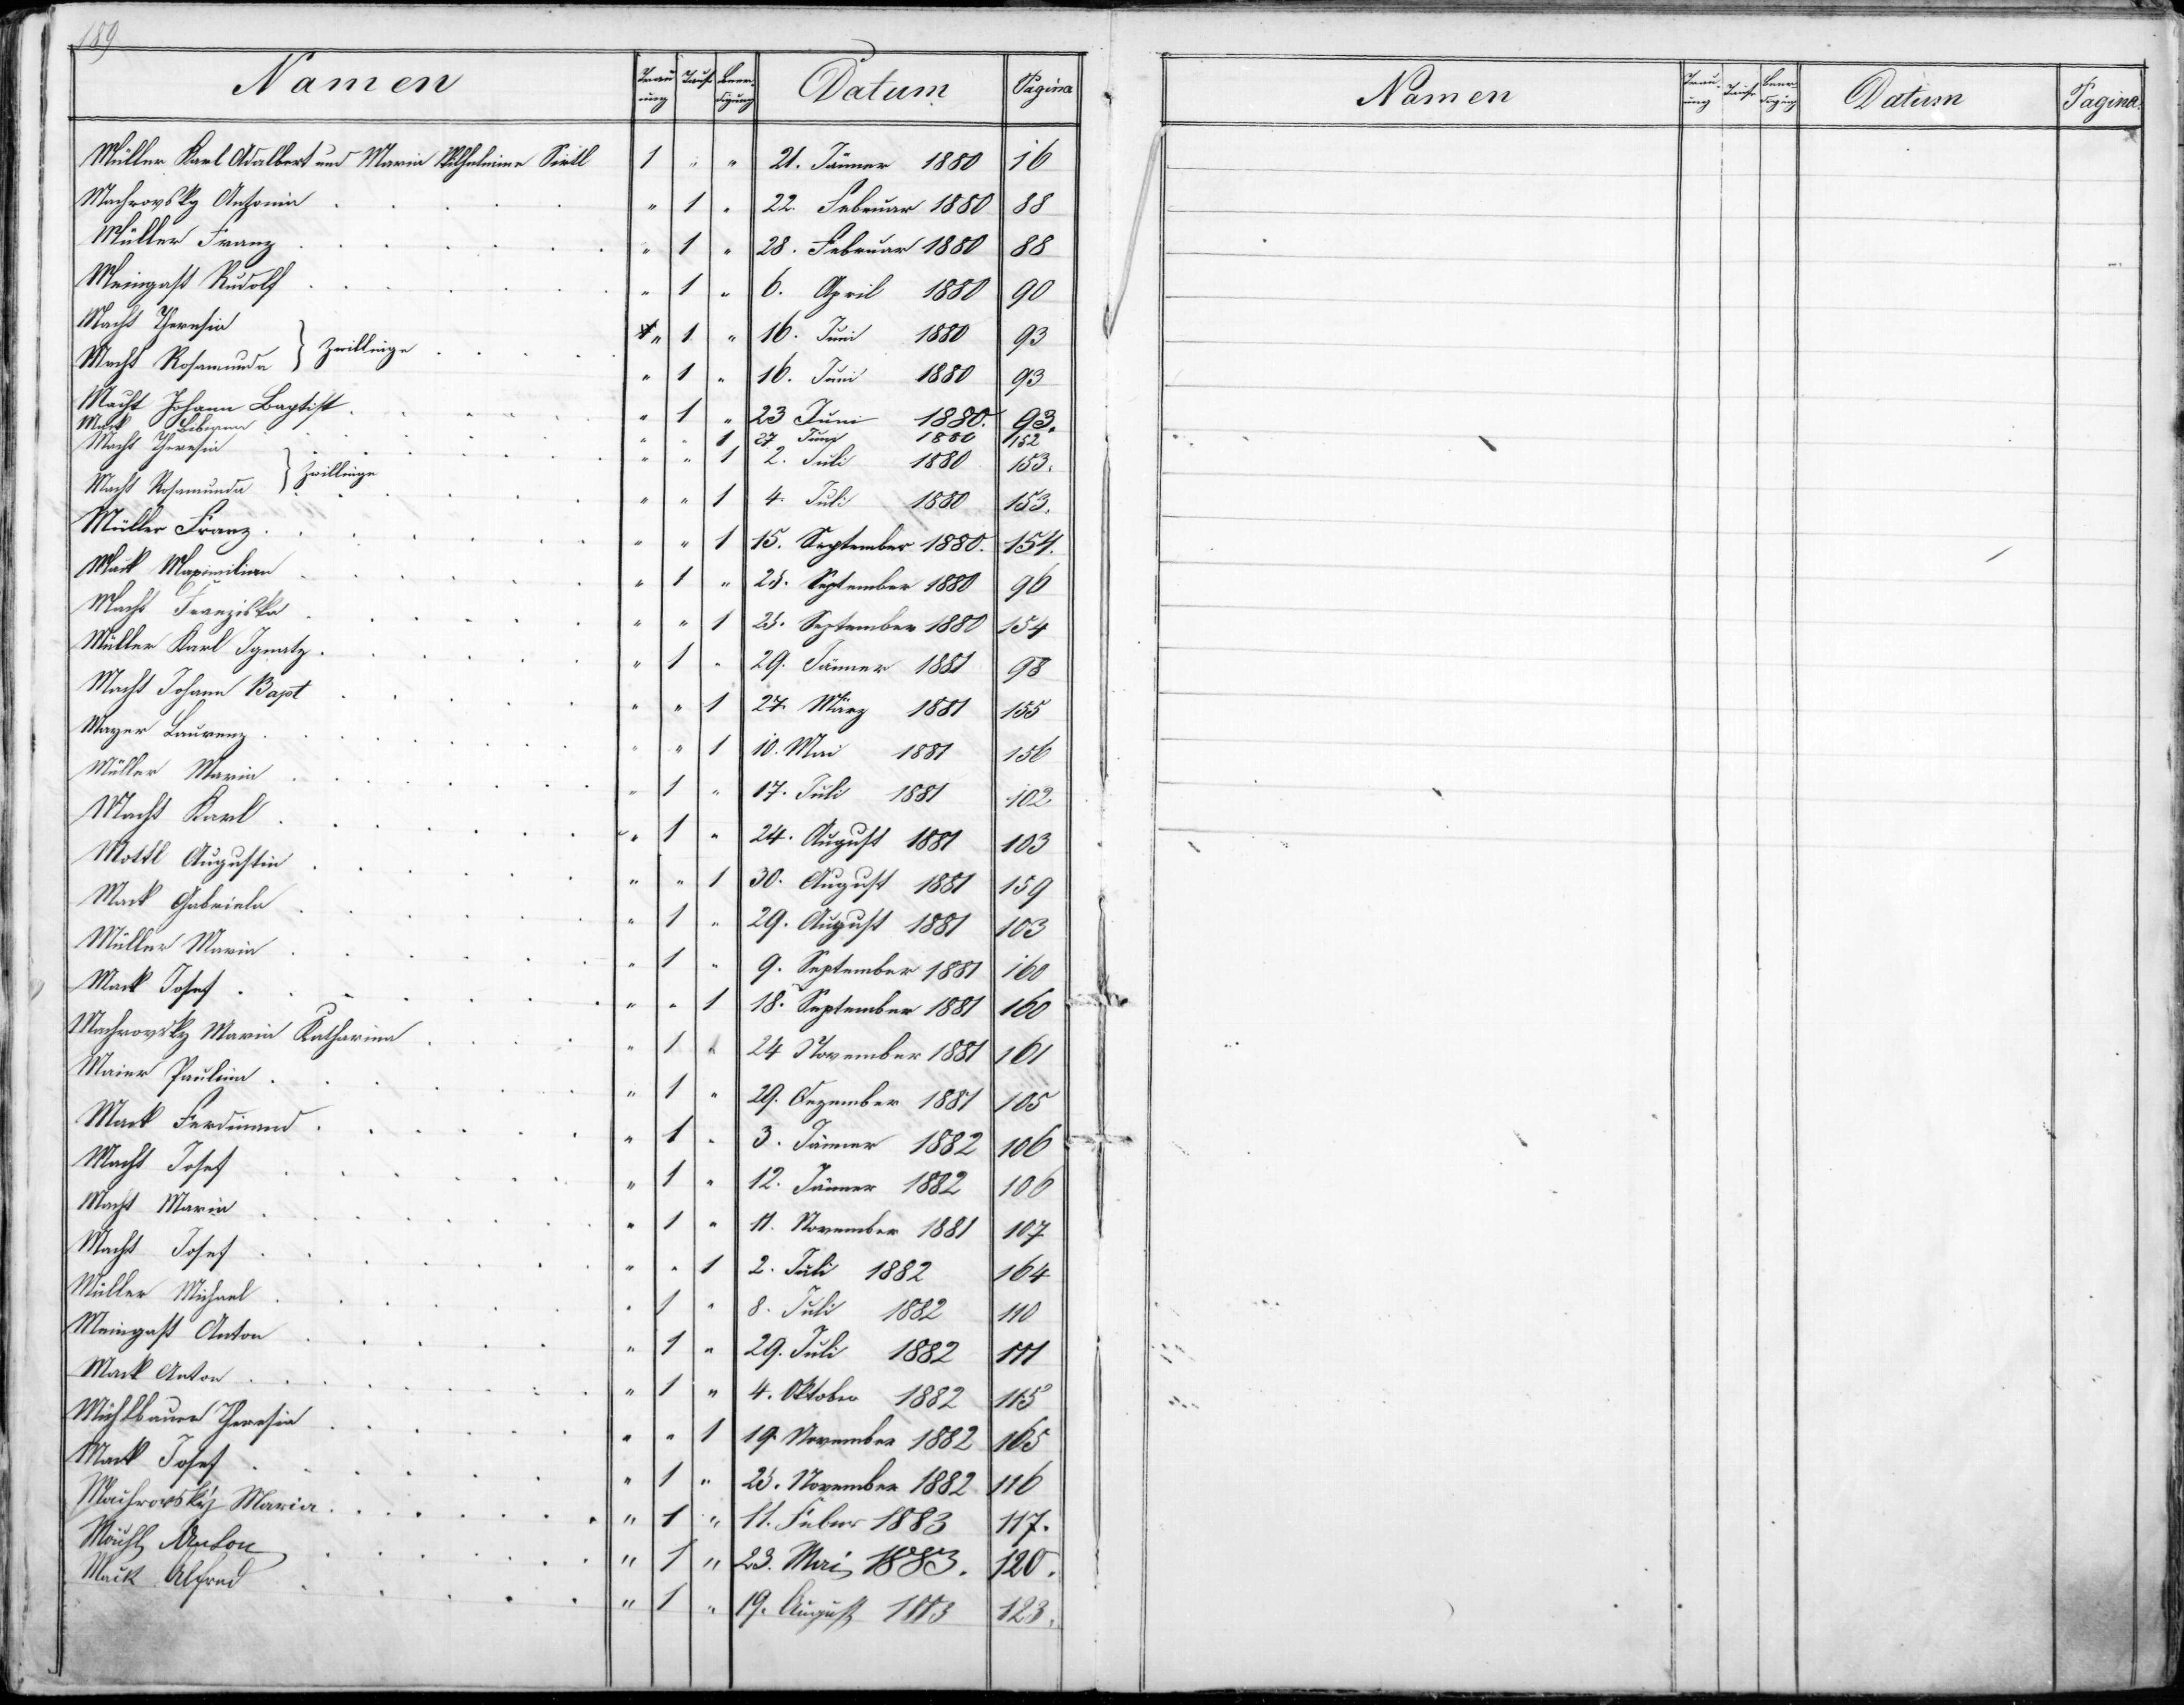 189
Namen Trau ung Taufe Beer digung Datum Pagina
Müller Karl Adalbert und Maria Wilhelmine Sirtl 1 " " 21. Jänner 1880 16
Machrovsky Antonia " 1 " 22. Februar 1880 88
Müller Franz " 1 " 28. Februar 1880 88
Meingast Rudolf " 1 " 6. April 1880 90
Macht Theresia } Zwillinge " 1 " 16. Juni 1880 93
Macht Rosamunda " 1 " 16. Juni 1880 93
Macht Johann Baptist " 1 " 23 Juni 1880. 93.
Mack " " 1 27 Juni 1880 152
Macht Theresia } Zwillinge " " 1 2. Juli 1880 153.
Macht Rosamunda " " 1 4. Juli 1880 153.
Müller Franz " " 1 15. September 1880. 154.
Mack Maximilian " 1 " 25. September 1880 96
Macht Franziska " " 1 25. September 1880 154
Müller Karl Ignatz " 1 " 29. Jänner 1881 98
Macht Johann Bapt " " 1 27. März 1881 155
Mayer Laurenz " " 1 10. Mai 1881 156
Müller Maria " 1 " 17. Juli 1881 102
Macht Karl " 1 " 24. August 1881 103
Mottl Augustin " " 1 30. August 1881 159
Mack Gabriela " 1 " 29. August 1881 103
Müller Maria " 1 " 9. September 1881 160
Mack Josef " " 1 18. September 1881 160
Machrovsky Maria Katharina " 1 " 24 November 1881 161
Maier Paulina " 1 " 29. Dezember 1881 105
Mack Ferdinand " 1 " 3. Jänner 1882 106
Macht Josef " 1 " 12. Jänner 1882 106
Macht Maria " 1 " 11. November 1881 107
Macht Josef " " 1 2. Juli 1882 164
Müller Michael " 1 " 8. Juli 1882 110
Meingast Anton " 1 " 29. Juli 1882 111
Mack Anton " 1 " 4. Oktober 1882 115
Mühlbauer Theresia " " 1 19. November 1882 165
Mack Josef " 1 " 25. November 1882 116
Machrovský Maria " 1 " 11. Feber 1883 117.
Macht Anton " 1 " 23. Mai 1883. 120.
Mack Alfred " 1 " 19. August 1883 123.
Namen Trau- ung Taufe Beer- digung Datum Pagina.